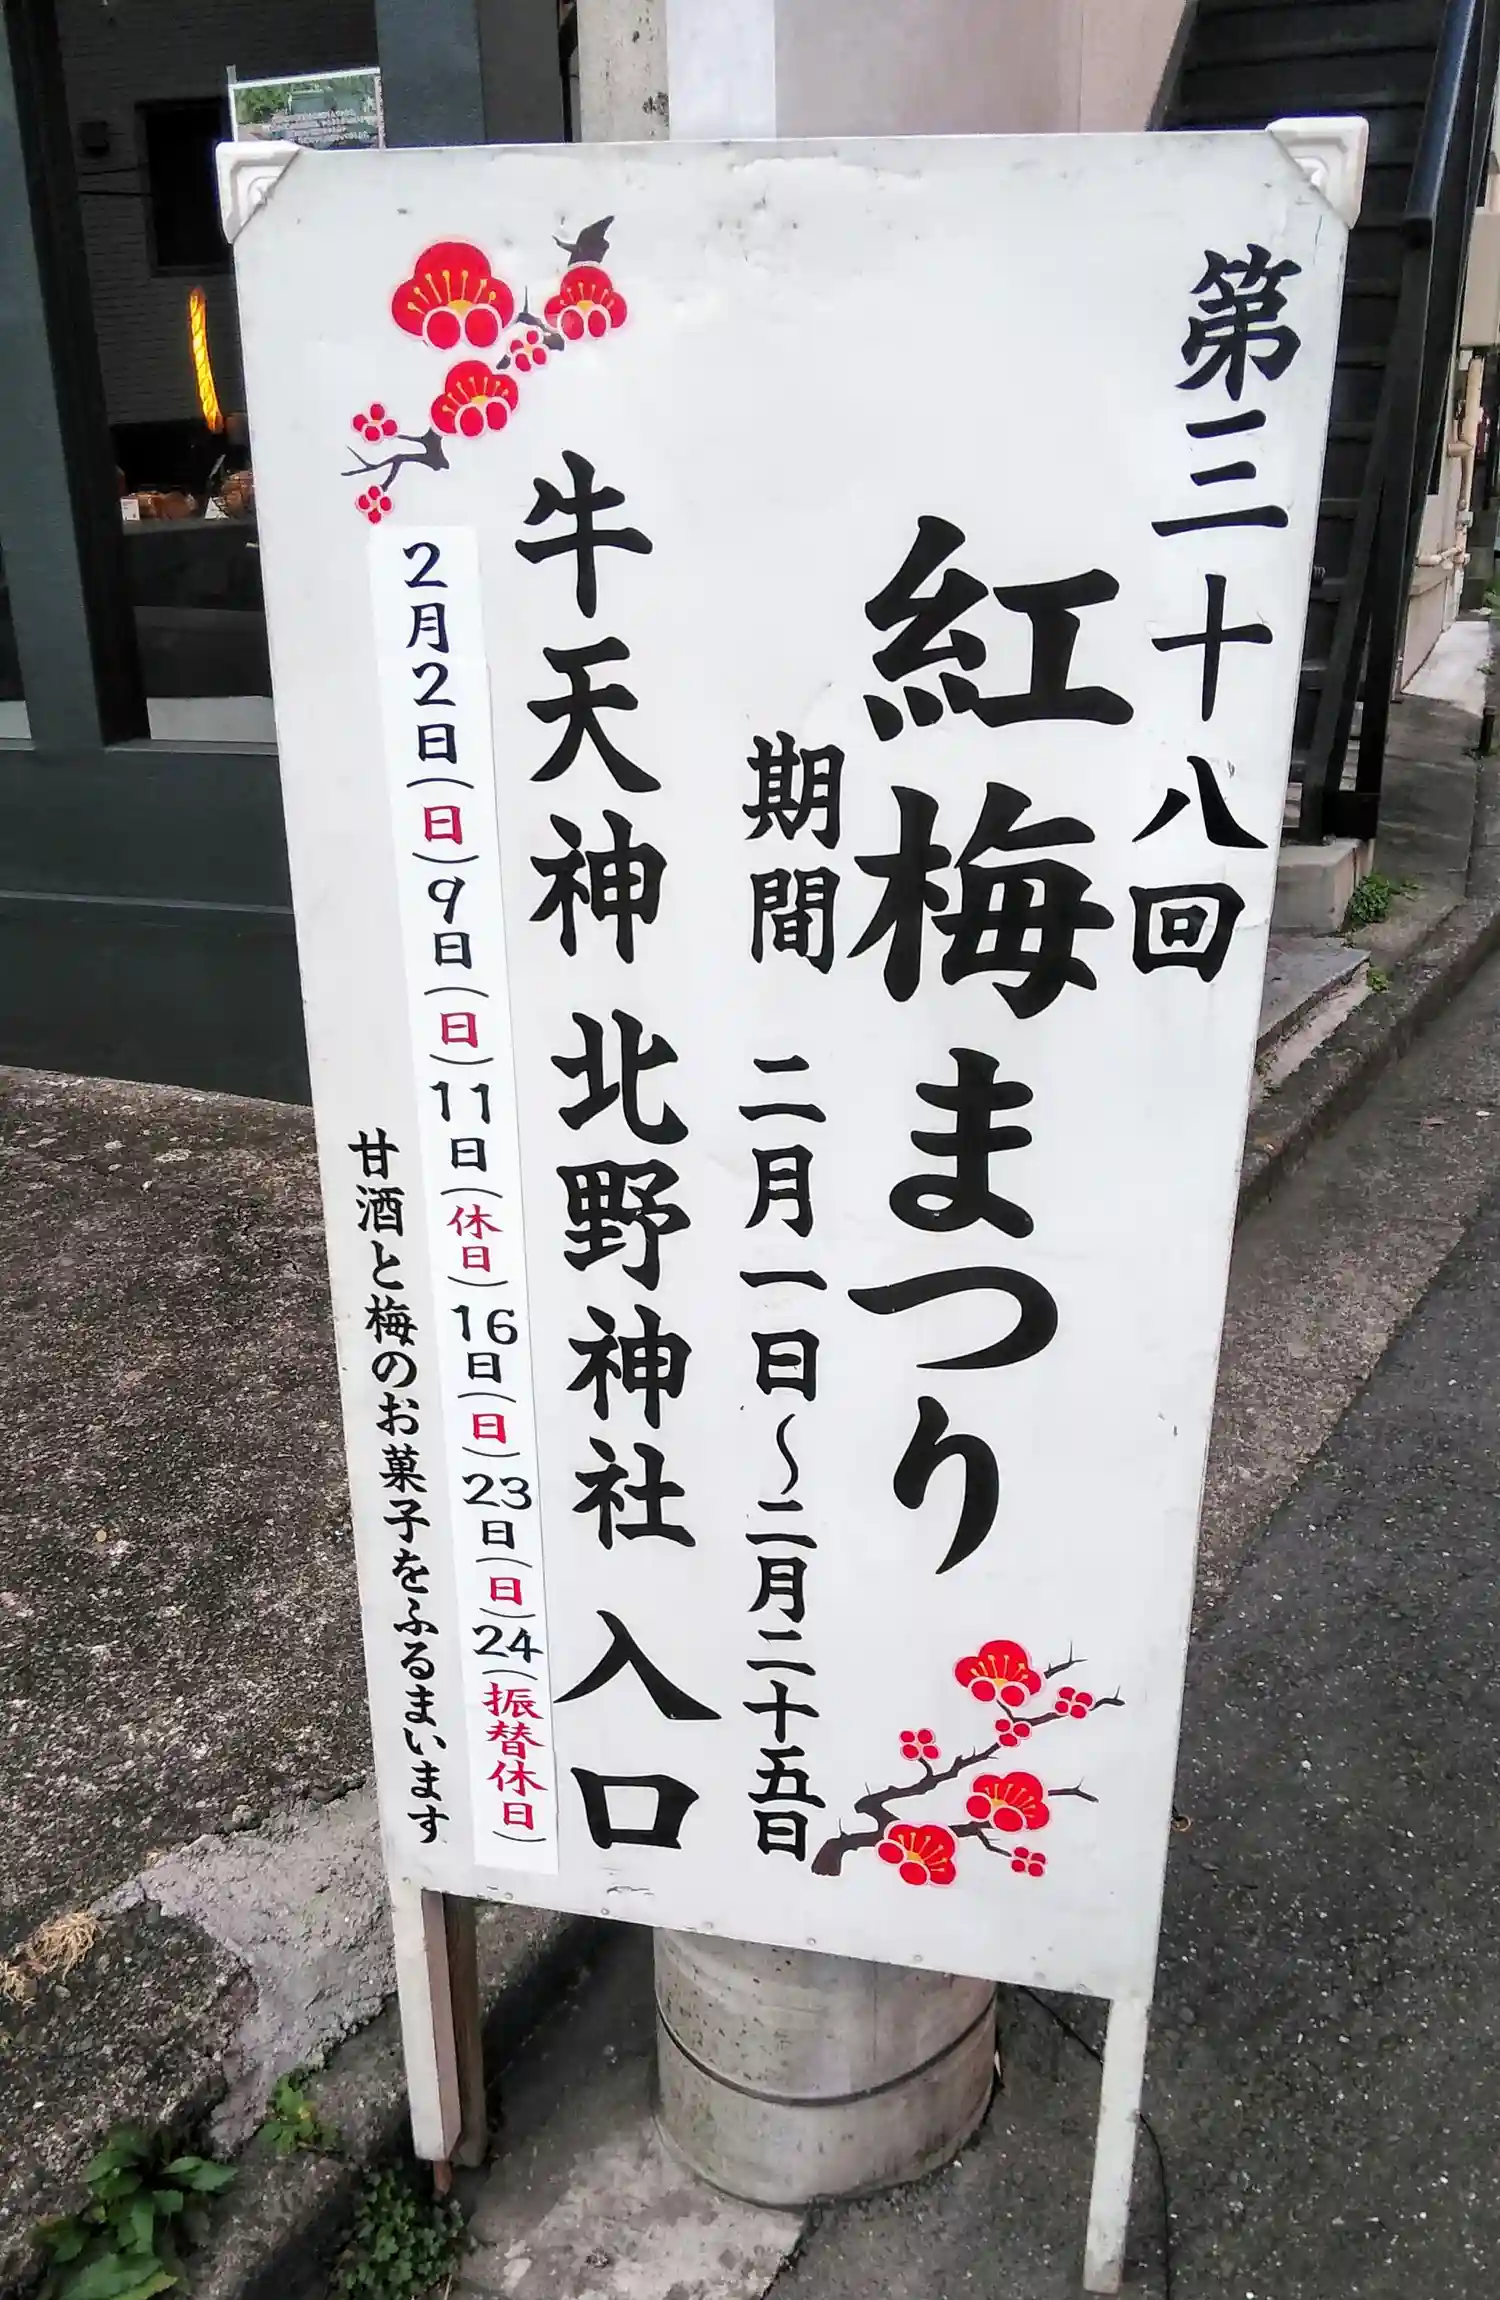 第三十八回
紅梅まつり
期間 二月一日～二月二十五日
牛天神 北野神社 入口
2月2日(日)9日(日)11日(休日)16日(日)23日(日)24(振替休日)
甘酒と梅のお菓子をふるまいます